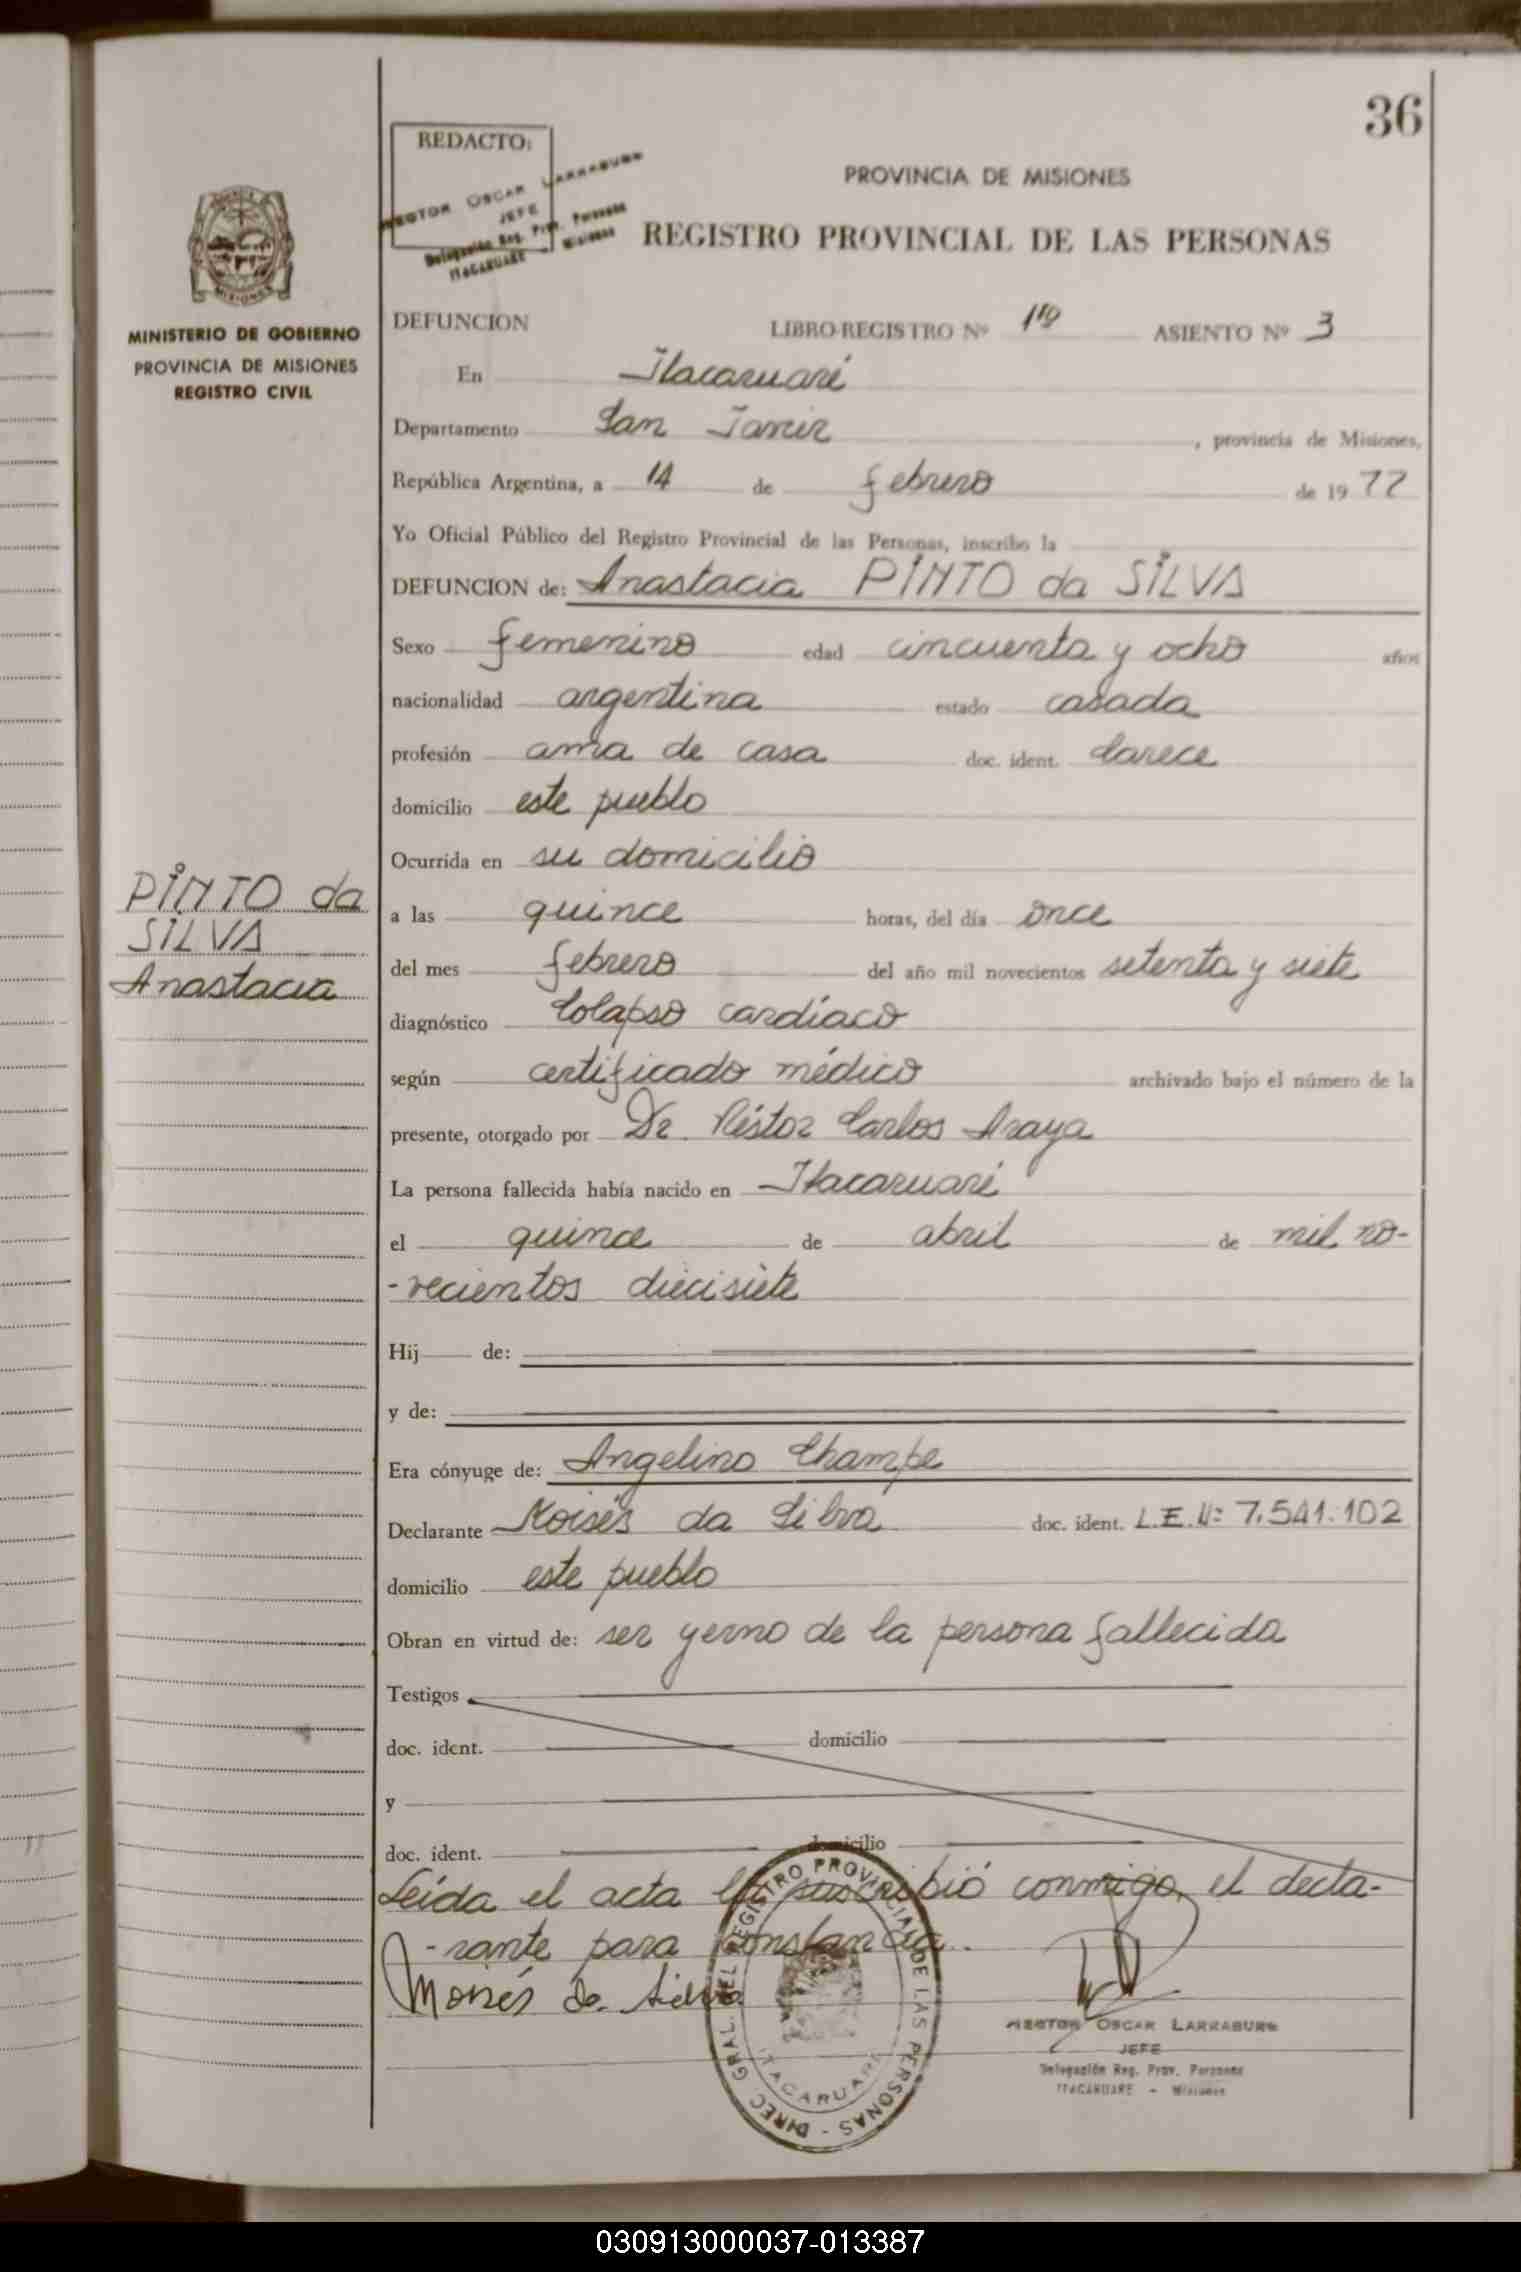 36
REDACTO:
HECTOR OSCAR LARRABURE
JEFE
Delegación Reg. Prov. Personas
ITACARUARE - Misiones
PROVINCIA DE MISIONES
REGISTRO PROVINCIAL DE LAS PERSONAS
MINISTERIO DE GOBIERNO
PROVINCIA DE MISIONES
REGISTRO CIVIL
DEFUNCION LIBRO-REGISTRO Nº 1º ASIENTO Nº 3
En Itacaruaré
Departamento San Javier, provincia de Misiones,
República Argentina, a 14 de febrero de 1977
Yo Oficial Público del Registro Provincial de las Personas, inscribo la
DEFUNCION de: Anastacia PINTO da SILVA
Sexo femenino edad cincuenta y ocho años
nacionalidad argentina estado casada
profesión ama de casa doc. ident. Carece
domicilio este pueblo
Ocurrida en su domicilio
PINTO da
SILVA
Anastacia
a las quince horas, del día once
del mes febrero del año mil novecientos setenta y siete
diagnóstico Colapso cardíaco
según certificado médico archivado bajo el número de la
presente, otorgado por Dr. Néstor Carlos Araya
La persona fallecida había nacido en Itacaruaré
el quince de abril de mil no-
-vecientos diecisiete
Hij de:
y de:
Era cónyuge de: Angelino Champe
Declarante Moisés da Silva doc. ident. L.E.Nº 7.541.102
domicilio este pueblo
Obran en virtud de: ser yerno de la persona fallecida
Testigos
doc. ident. domicilio
y
doc. ident. domicilio
Leída el acta la suscribió conmigo, el decla-
-rante para constancia.
Moisés da Silva
DIREC. GRAL. DEL REGISTRO PROVINCIAL DE LAS PERSONAS -
ITACARUARE
HECTOR OSCAR LARRABURE
JEFE
Delegación Reg. Prov. Personas
ITACARUARE - Misiones
030913000037-013387